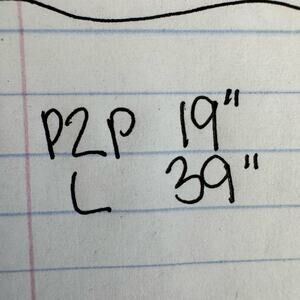 P2P 19"
L 39"